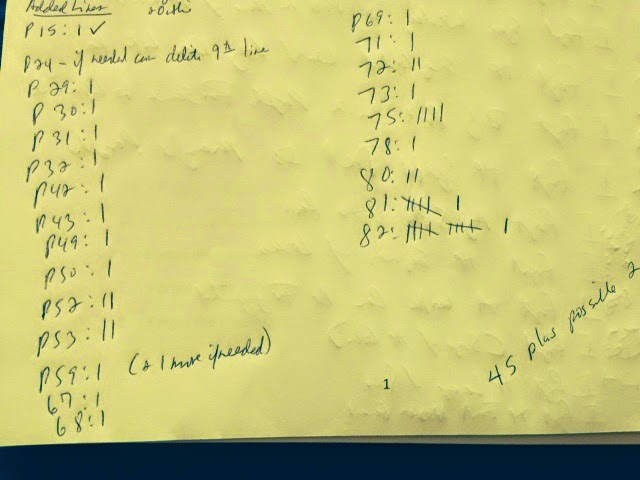 Added Lines
P 15: 1 ✓
P24 - if needed can delete 9th line
P 29: 1
P 30: 1
P 31: 1
P 32: 1
P42: 1
P43: 1
P49: 1
P50: 1
P52: 11
P53: 11
P59: 1 (& 1 more if needed)
67: 1
68: 1
P69: 1
71: 1
72: 11
73: 1
75: 1111
78: 1
80: 11
81: 卌 1
82: 卌 卌 1
45 plus possible 2
1